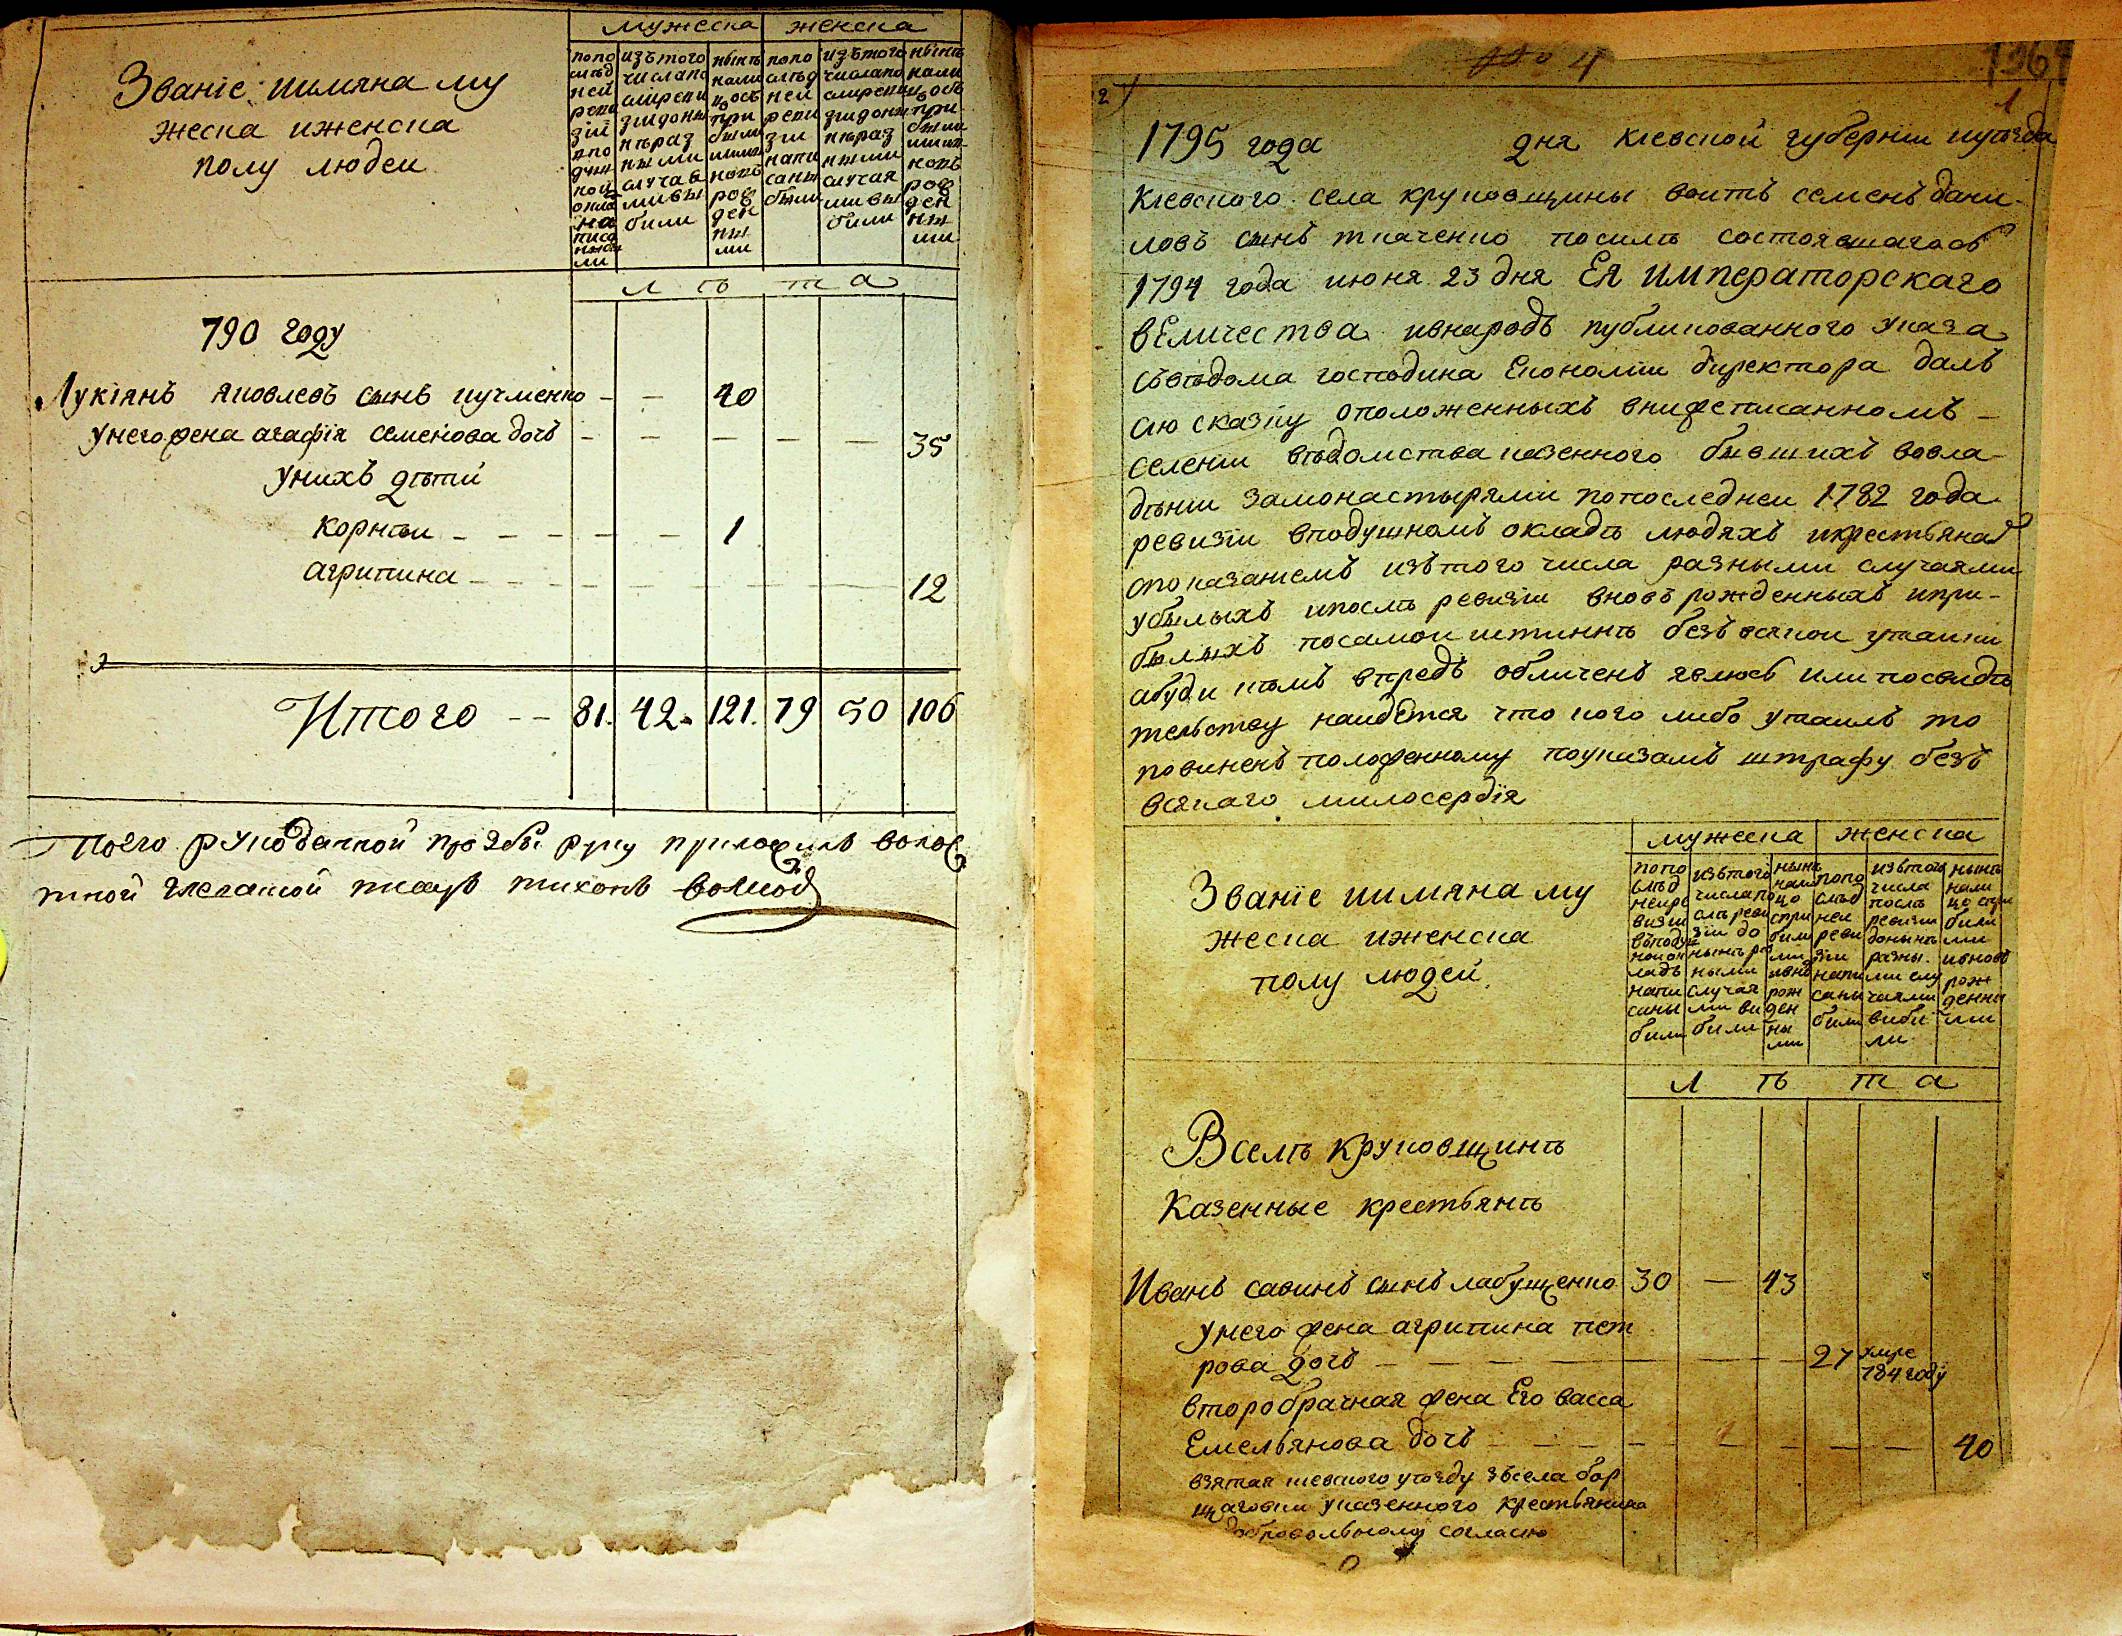 мужеска женска
Званїе иимяна му
жеска иженска
полу людеи
попо слѣд ней реви зїй впо душ ной окла на писа ными ли
изъ того числапо слѣреви зиидоны нѣраз ными случая ми вы били
нынѣ нали цо съ при были ми и новъ рож ден ны ми
попо слѣд ней реви зїи напи саны были
изъ того числапо слѣреви зиидоны нѣраз ными случая ми вы били
нынѣ нали цо съ при были ми и новъ рож ден ны ми
л ѣ т а
790 году
Лукїянъ яковлевъ сынъ кучменко - - 40
Унегожена агафїя семенова дочь - - - - - 35
Унихъ дѣти
корнѣи - - - - - 1
агрипина - - - - - - - 12
Итого - - 81. 42. 121. 79 50 106
тной писарь тихонъ
4
1
1795 года дня кїевской губернїи иуѣзда
кїевского села круковщины воитъ семенъ дани-
ловъ сынъ ткаченко посилѣ состоявшагось
1794 года июня 23 дня Ея императорскаго
вЕличества ивнародъ публикованного указа
свѣдома господина Економїи директора далъ
сїю сказку оположенныхъ внижеписанномъ -
селенїи вѣдомства казенного бывшихъ вовла-
дѣнїи замонастырями попоследнеи 1782 года
ревизїи вподушномъ окладѣ людяхъ икрестьянах
споказанїемъ изътого числа разными случаями
убылыхъ ипослѣ ревизїи вновъ рожденныхъ ипри-
былыхъ посамои истиннѣ безъ всякои утаики
абуди кѣмъ впредь обличенъ явлюсь или посвидѣ
тельству наидется что кого либо утаилъ то
повиненъ положенному поуказамъ штрафу безъ
всякаго милосердїя
мужеска женска
Званїе иимяна му
жеска иженска
полу людей
попо слѣд неире визїи въподуш номок ладѣ напи саны были
изътого числапо слѣреви зїи до нынѣ раз ными случая ми ви били
нынѣ нали цо спри были ми ивновъ рож ден ны ми
попо слѣд неи реви зїи напи саны были
изътого числа послѣ ревизїи донынѣ разны. ми слу чаями виби ли
нынѣ нали цо спри били ми ивновъ рож денны ми
л ѣ т а
Вселѣ Круковщинѣ
Казенные крестьянѣ
Иванъ савинъ сынъ лабущенко 30 - 43
Унего жена агрипина пет
рова дочь - - - - - - - 27 умре
784 году
второбрачная жена Его васса
Емельянова дочь - - - - - - - 40
взятая кїевского уѣзду зъсела бор
щаговки указенного крестьянина
добровольному согласию